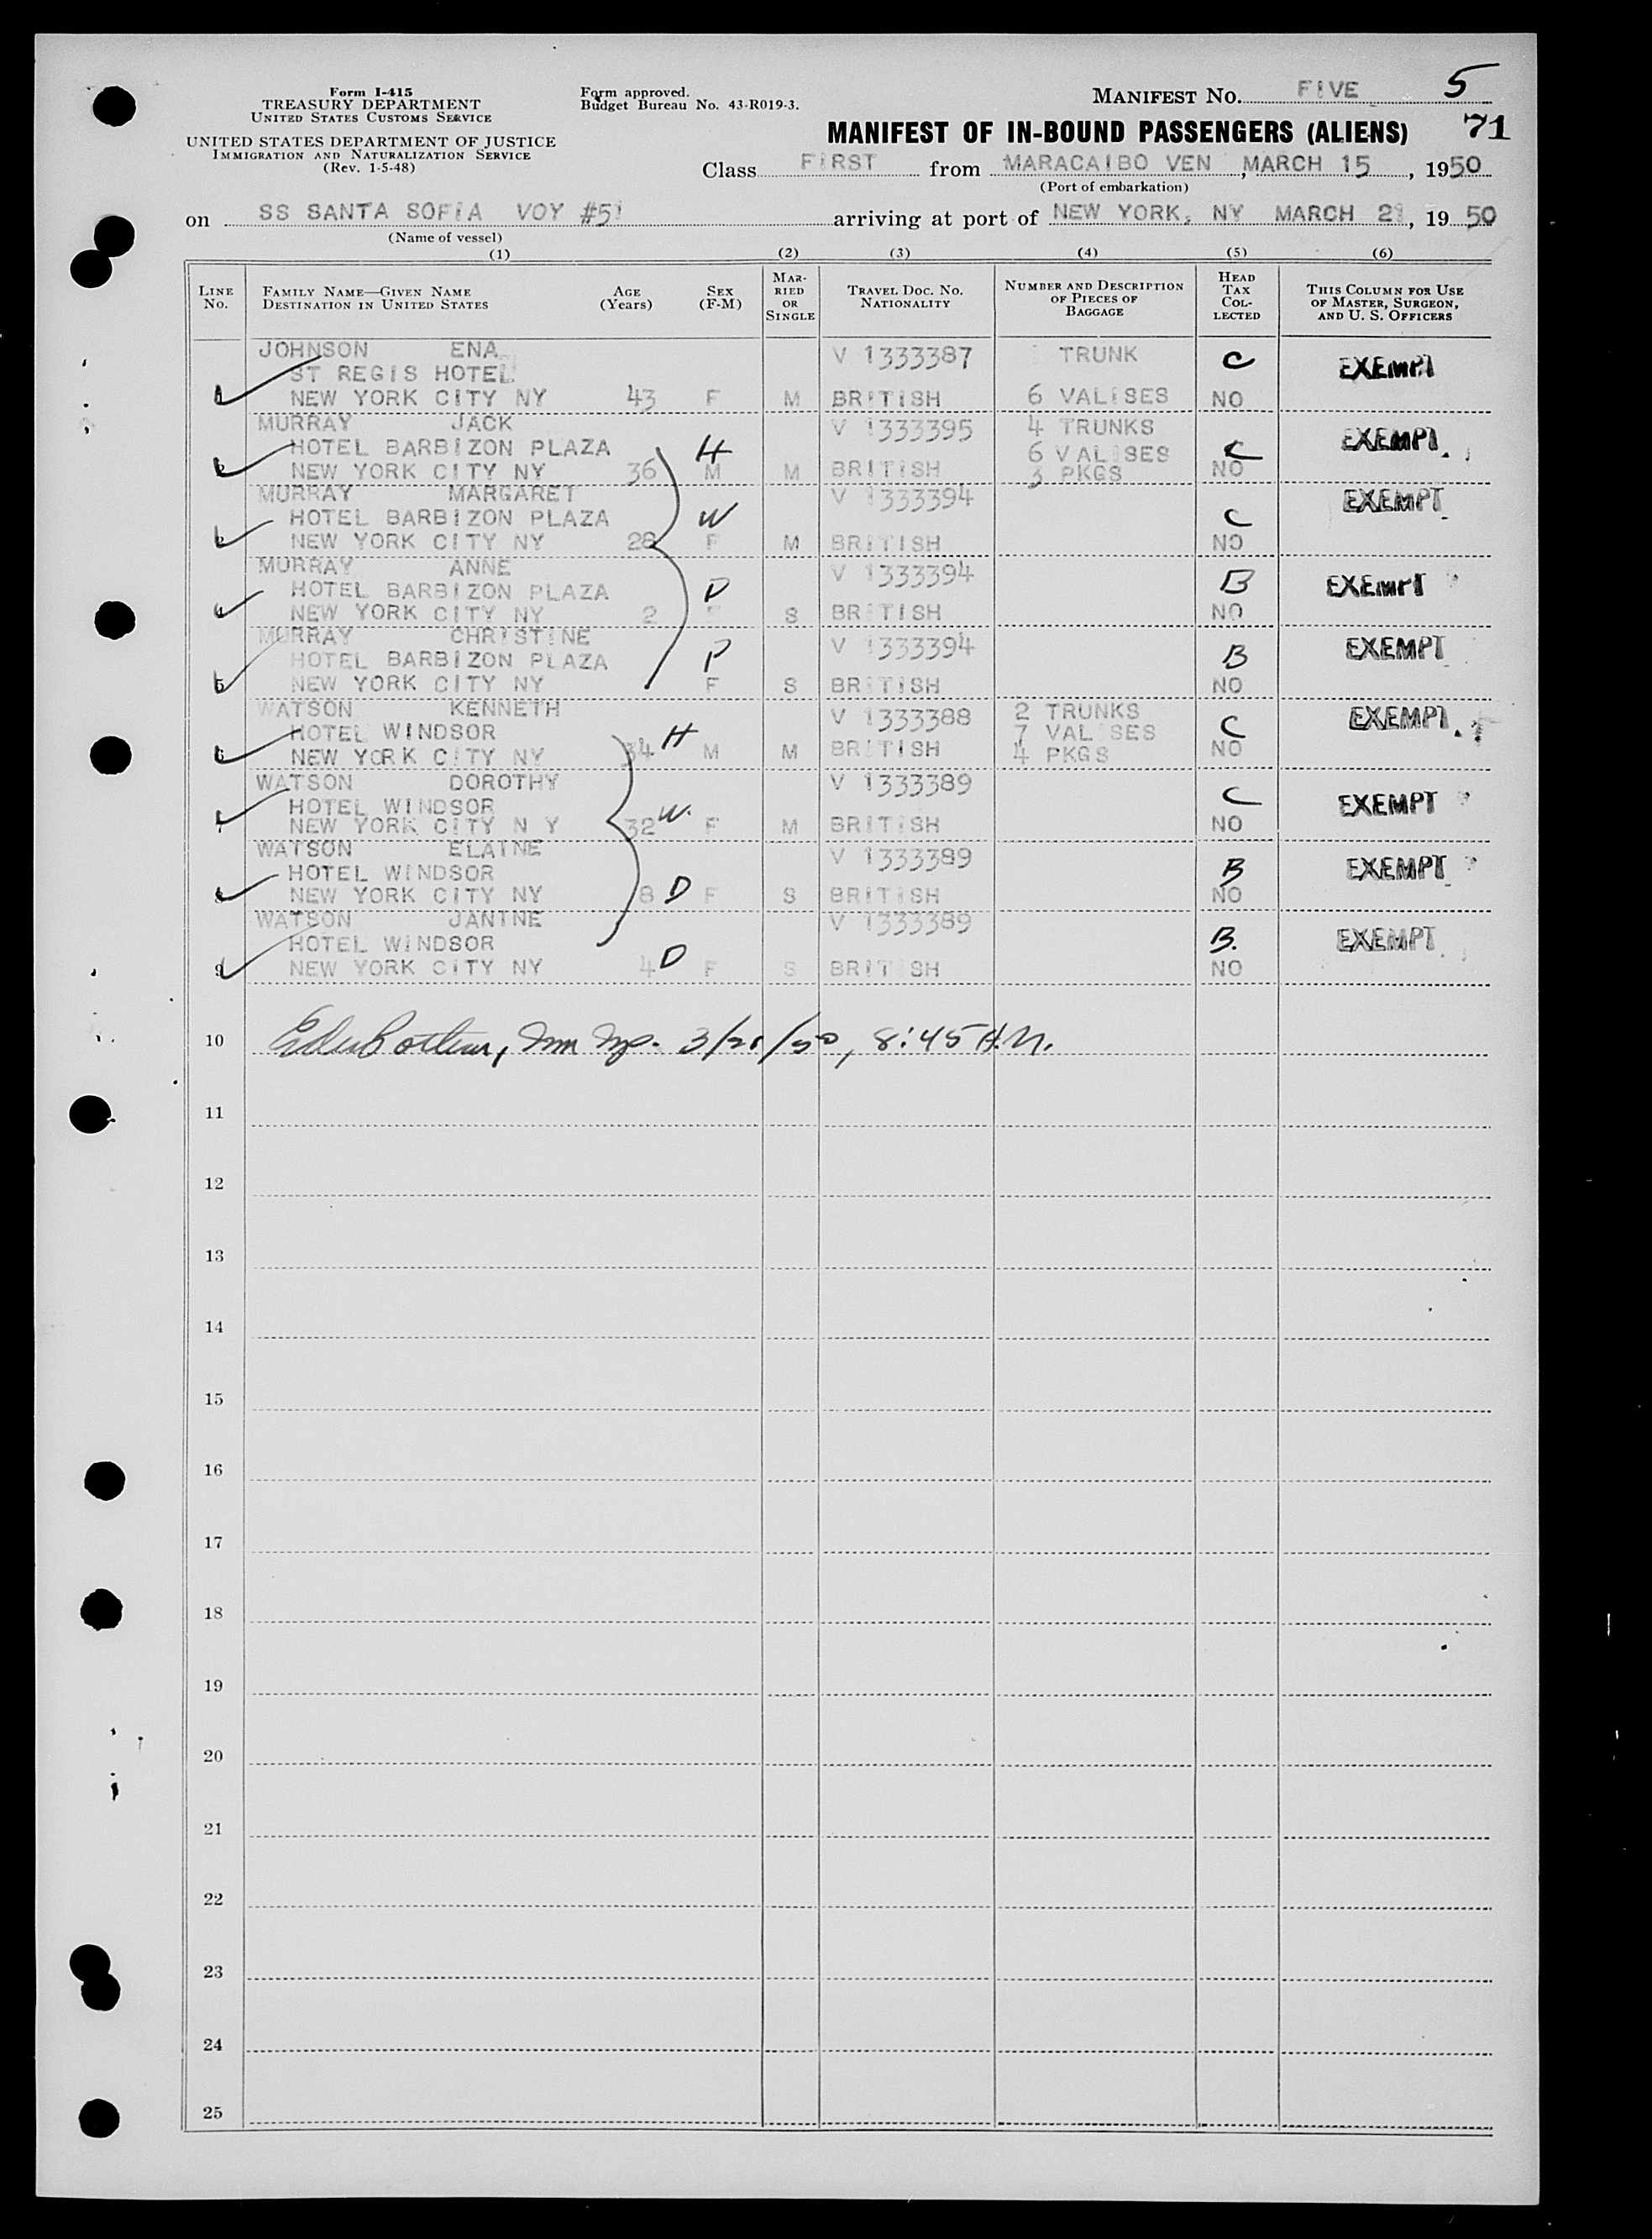 Form I-415
TREASURY DEPARTMENT
UNITED STATES CUSTOMS SERVICE
UNITED STATES DEPARTMENT OF JUSTICE
IMMIGRATION AND NATURALIZATION SERVICE
(Rev. 1-5-48)
Form approved.
Budget Bureau No. 43-R019-3.
MANIFEST NO. FIVE 5
MANIFEST OF IN-BOUND PASSENGERS (ALIENS) 71
Class FIRST from MARACAIBO VEN, MARCH 15, 1950
(Port of embarkation)
on SS SANTA SOFIA VOY #51 arriving at port of NEW YORK, NY MARCH 21, 1950
(Name of vessel)
(1) (2) (3) (4) (5) (6)
LINE NO. FAMILY NAME—GIVEN NAME DESTINATION IN UNITED STATES AGE (Years) SEX (F-M) MARRIED OR SINGLE TRAVEL DOC. NO. NATIONALITY NUMBER AND DESCRIPTION OF PIECES OF BAGGAGE HEAD TAX COLLECTED THIS COLUMN FOR USE OF MASTER, SURGEON, AND U. S. OFFICERS
JOHNSON ENA V 1333387 TRUNK C EXEMPT
ST REGIS HOTEL
1 NEW YORK CITY NY 43 F M BRITISH 6 VALISES NO
MURRAY JACK V 1333395 4 TRUNKS EXEMPT
HOTEL BARBIZON PLAZA H 6 VALISES C
2 NEW YORK CITY NY 36 M M BRITISH 3 PKGS NO
MURRAY MARGARET V 1333394 EXEMPT
HOTEL BARBIZON PLAZA W C
3 NEW YORK CITY NY 28 F M BRITISH NO
MURRAY ANNE V 1333394 B EXEMPT
HOTEL BARBIZON PLAZA D
4 NEW YORK CITY NY 2 F S BRITISH NO
MURRAY CHRISTINE V 1333394 EXEMPT
HOTEL BARBIZON PLAZA D B
5 NEW YORK CITY NY F S BRITISH NO
WATSON KENNETH V 1333388 2 TRUNKS EXEMPT
HOTEL WINDSOR H 7 VALISES C
6 NEW YORK CITY NY 34 M M BRITISH 4 PKGS NO
WATSON DOROTHY V 1333389
HOTEL WINDSOR W. C EXEMPT
7 NEW YORK CITY N Y 32 F M BRITISH NO
WATSON ELAINE V 1333389
HOTEL WINDSOR B EXEMPT
8 NEW YORK CITY NY 8 D F S BRITISH NO
WATSON JANINE V 1333389
HOTEL WINDSOR D B. EXEMPT
9 NEW YORK CITY NY 4 F S BRITISH NO
10 3/21/50, 8:45 A.M.
11
12
13
14
15
16
17
18
19
20
21
22
23
24
25